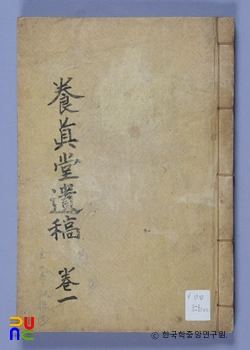 養眞堂遺稿 卷一
PUNC
ⓒ 한국학중앙연구원